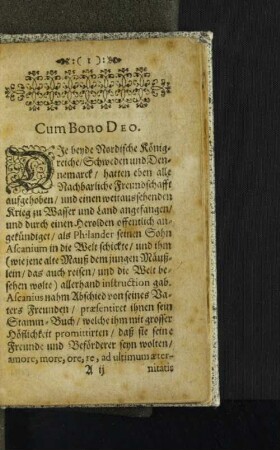 :( 1 ):
Cum Bono DEO.
DJe beyde Nordische König-
reiche/ Schweden und Den-
nemarck/ hatten eben alle
Nachbarliche Freundschafft
aufgehoben/ und einen weitaussehenden
Krieg zu Wasser und Land angefangen/
und durch einen Herolden offentlich an-
gekündiget/ als Philander seinen Sohn
Ascanium in die Welt schickte/ und ihm
(wie jene alte Mauß dem jungen Mäuß-
lein/ das auch reisen/ und die Welt be-
sehen wolte) allerhand instruction gab.
Ascanius nahm Abschied von seines Va-
ters Freunden/ præsentiret ihnen sein
Stamm-Buch/ welche ihm mit grosser
Höfflichkeit promittirten/ daß sie seine
Freunde und Beförderer seyn wolten/
amore, more, ore, re, ad ultimum æter-
A ij nitatis